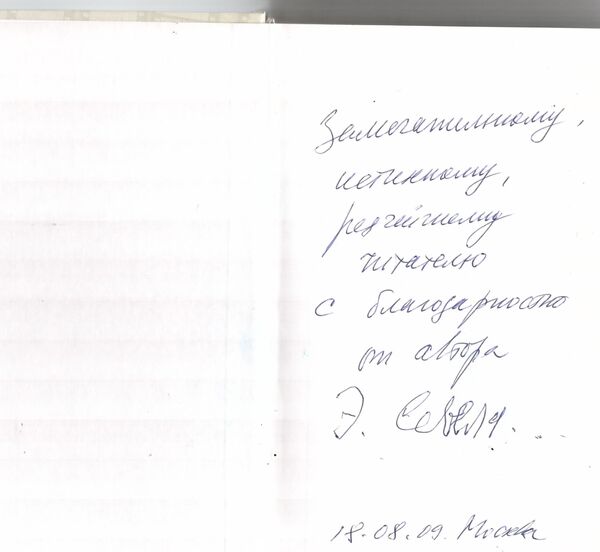 Замечательному,
истинному,
редчайшему
читателю
с благодарностью
от автора
Э. Севела
18.08.09. Москва